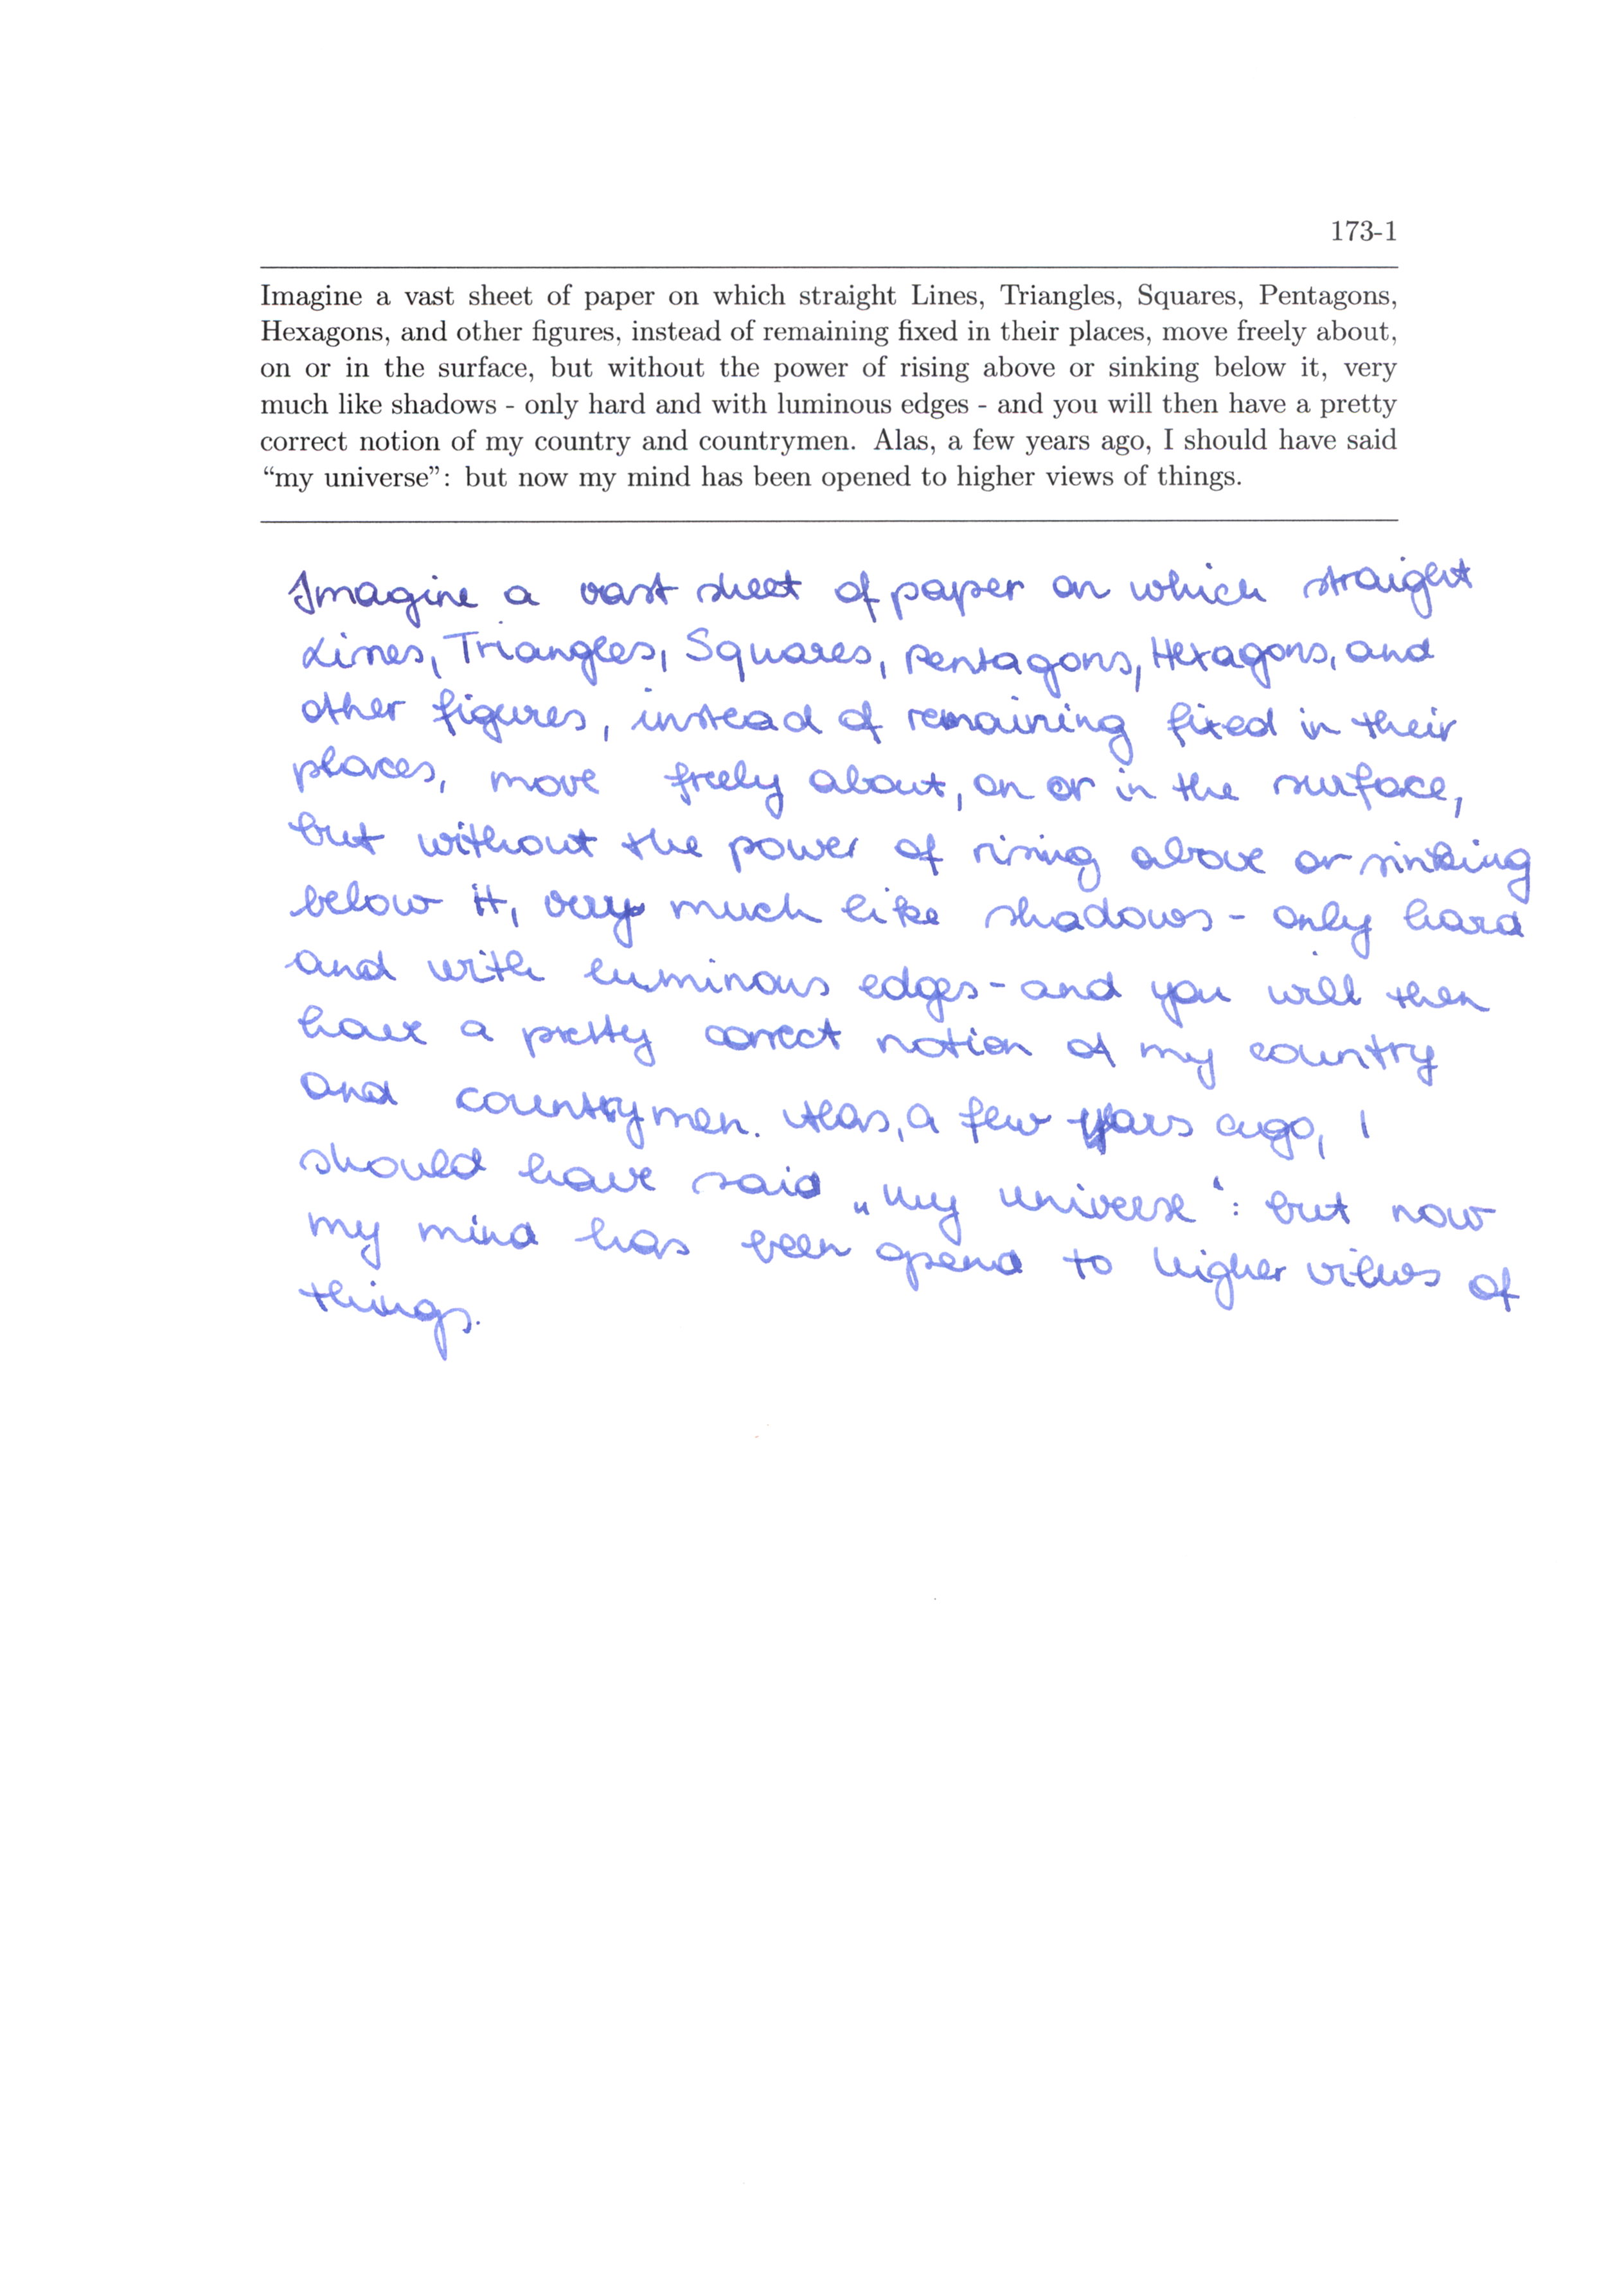 173-1
Imagine a vast sheet of paper on which straight Lines, Triangles, Squares, Pentagons,
Hexagons, and other figures, instead of remaining fixed in their places, move freely about,
on or in the surface, but without the power of rising above or sinking below it, very
much like shadows - only hard and with luminous edges - and you will then have a pretty
correct notion of my country and countrymen. Alas, a few years ago, I should have said
“my universe”: but now my mind has been opened to higher views of things.
Imagine a vast sheet of paper on which straight
Lines, Triangles, Squares, Pentagons, Hexagons, and
other figures, instead of remaining fixed in their
places, move freely about, on or in the surface,
but without the power of rising above or sinking
below it, very much like shadows - only hard
and with luminous edges - and you will then
have a pretty correct notion of my country
and countrymen. Alas, a few years ago, I
should have said „my universe‘: but now
my mind has been opend to higher views of
things.